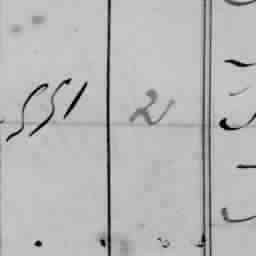 551 2